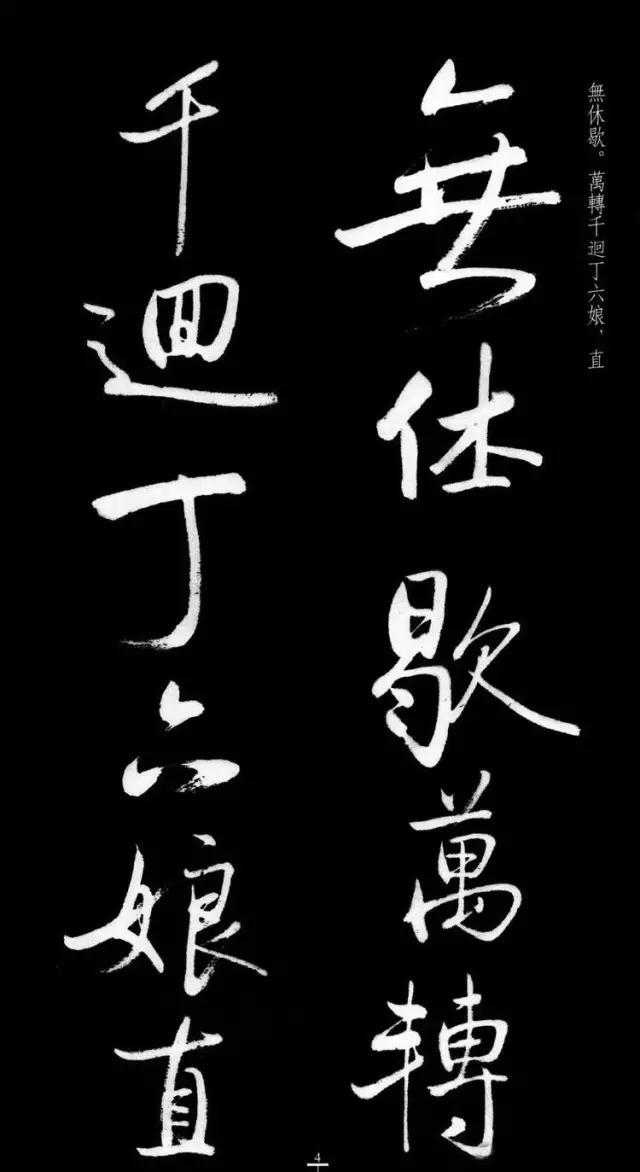 無休歇。萬轉千迴丁六娘，直
無休歇萬轉
千迴丁六娘直
4